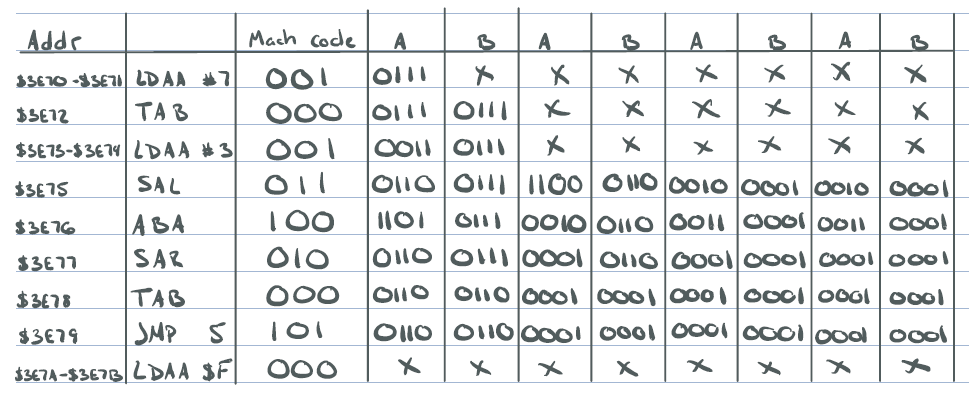 Addr Mach code A B A B A B A B
$3E70-$3E71 LDAA #7 001 0111 X X X X X X X
$3E72 TAB 000 0111 0111 X X X X X X
$3E73-$3E74 LDAA #3 001 0011 0111 X X X X X X
$3E75 SAL 011 0110 0111 1100 0110 0010 0001 0010 0001
$3E76 ABA 100 1101 0111 0010 0110 0011 0001 0011 0001
$3E77 SAR 010 0110 0111 0001 0110 0001 0001 0001 0001
$3E78 TAB 000 0110 0110 0001 0001 0001 0001 0001 0001
$3E79 JMP 5 101 0110 0110 0001 0001 0001 0001 0001 0001
$3E7A-$3E7B LDAA $F 000 X X X X X X X X